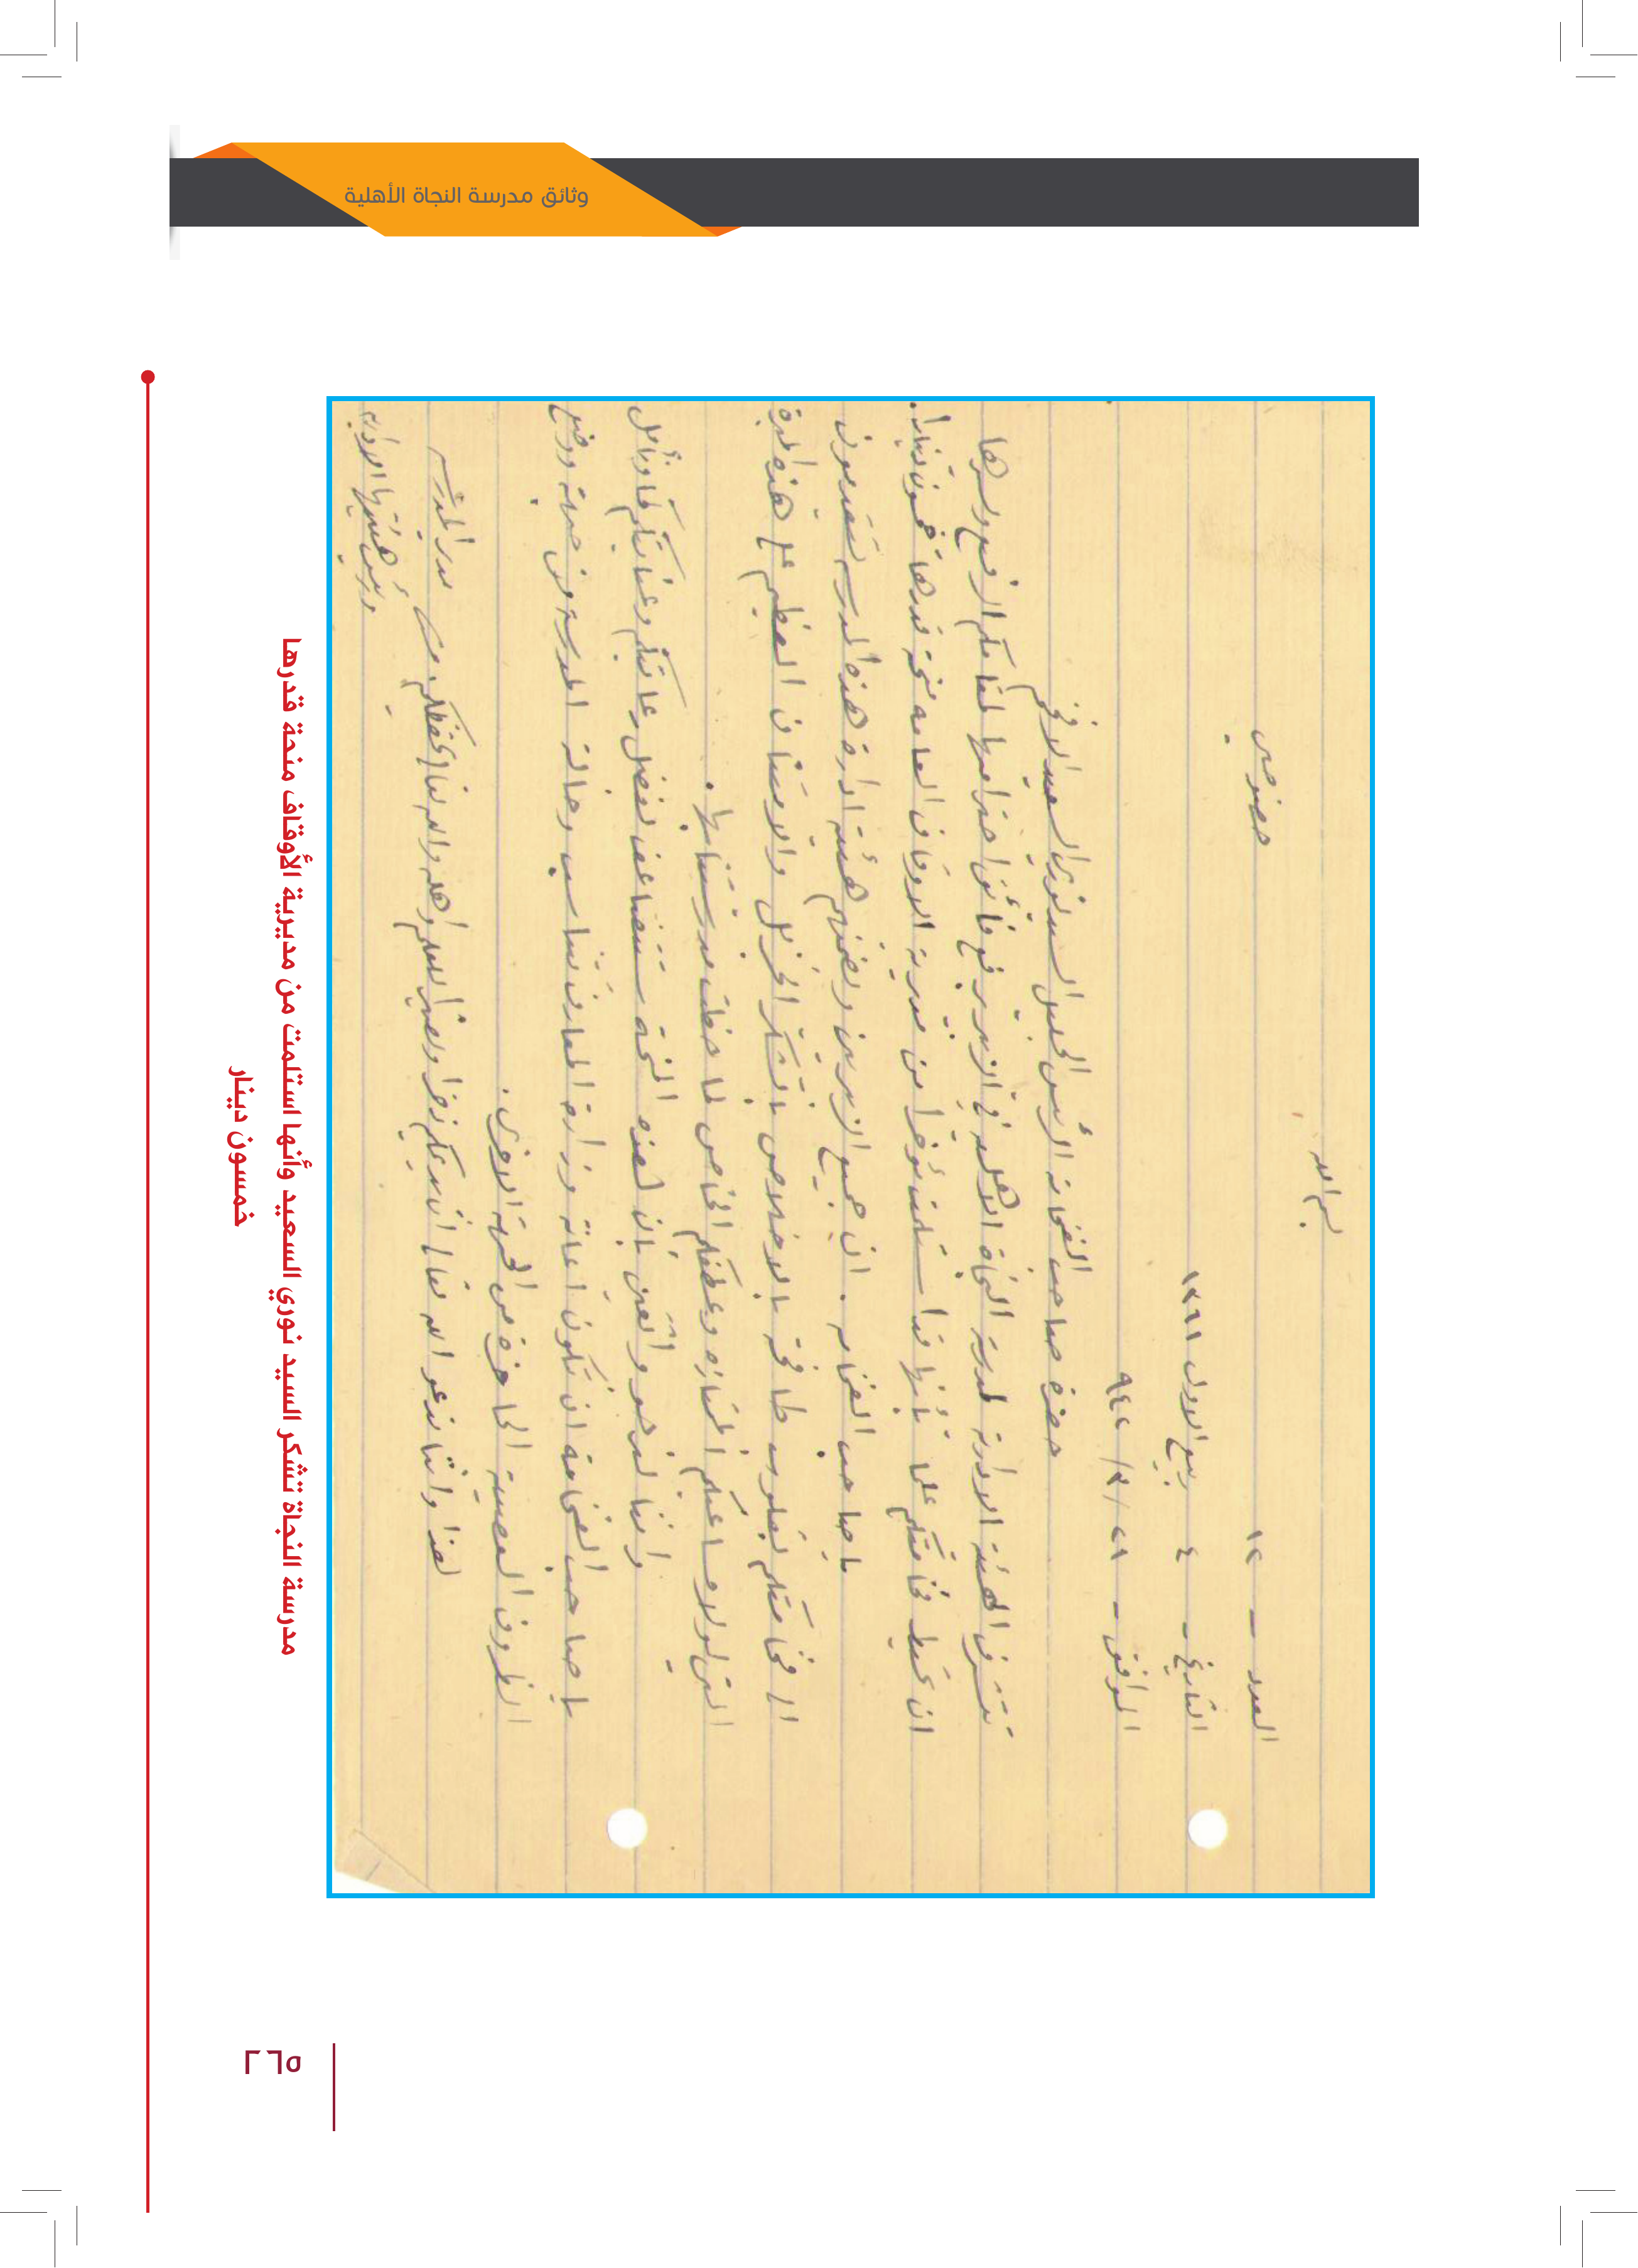 وثائق مدرسة النجاة الأهلية
بسم الله
العدد — ١٢ خصوصي
التاريخ - ٤ ربيع الاول ١٣٦١
الموافق - ٢١/٣/٩٤٢
حضرة صاحب الفخامة الرئيس الجليل السيد نوري السعيد الافخم
تتشرف الهيئة الادارية لمدرسة النجاة الاهلية في الزبير برفع فائق احترامها لمقامكم الرفيع ويسرها
ان تحيط فخامتكم علما بأنها قد استلمت مؤخرا من مديرية الاوقاف العامة منحة قدرها خمسون دينارا.
يا صاحب الفخامة. ان جميع الزبيريين وبضمنهم هيئة ادارة هذه المدرسة يتقدمون
الى فخامتكم بقلوب طافحة بالاخلاص بالشكر الجزيل والامتنان العظيم على هذه
التي لولا مساعيكم الممتازة وعطفكم الخاص لما حظيت مدرستنا بها.
واننا لنرجو واثقين بأن هذه المنحة ستتضاعف بفضل رعايتكم وعنايتكم
يا صاحب الفخامة ان تكون اعانة وزارة المعارف تتناسب وحالة المدرسة من جهة ووضع
الظروف العصيبة الحاضرة من الجهة الاخرى.
هذا واننا ندعو الله تعالى ان يديمكم ذخرا للعلم وأهله والله تعالى يحفظكم.
مدير المدرسة
ورئيس هيئتها الادارية
مدرسة النجاة تتشكر السيد نوري السعيد وأنها استلمت من مديرية الأوقاف منحة قدرها
خمسون دينار
٢٦٥